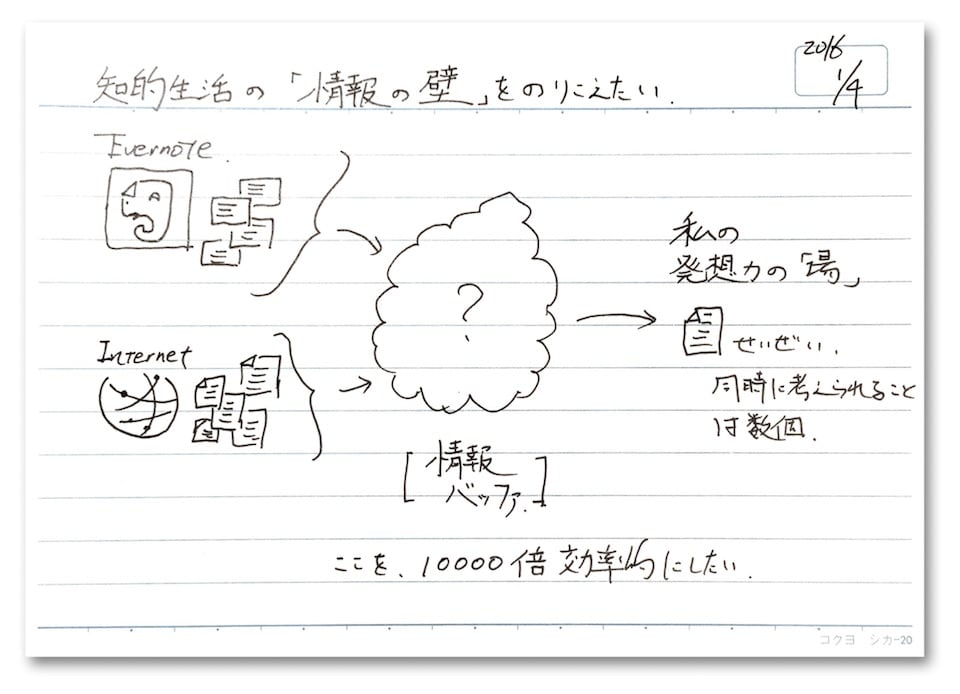 2016
1/4
知的生活の「情報の壁」をのりこえたい.
Evernote.
Internet
?
私の
発想力の「場」
せいぜい.
同時に考えられること
は数個.
[情報
バッファ.]
ここを、10000倍効率的にしたい.
コクヨ シカ-20